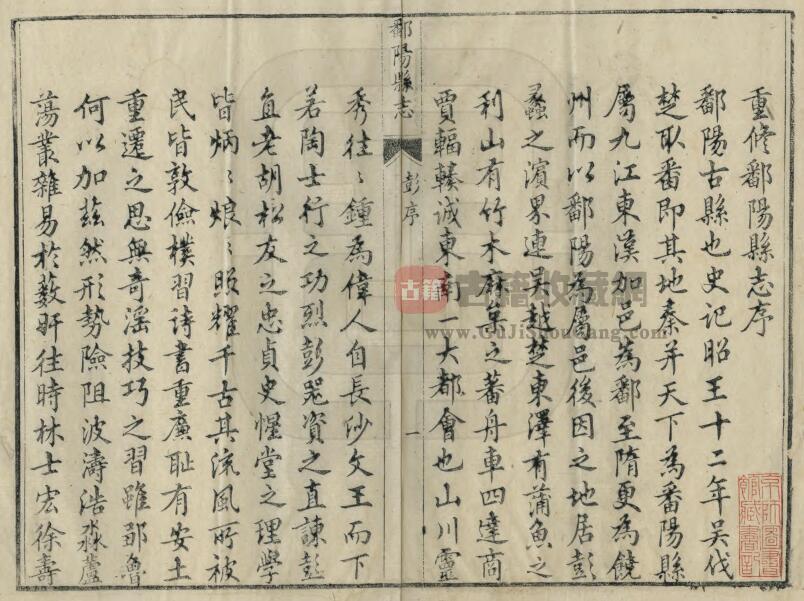 重修鄱陽縣志序
鄱陽古縣也史記昭王十二年吳伐
楚取番即其地秦并天下為番陽縣
屬九江東漢加邑為鄱至隋更為饒
州而以鄱陽為屬邑後因之地居彭
蠡之濱界連吳越楚東澤有蒲魚之
利山有竹木麻枲之蕃舟車四達商
賈輻輳诚東南一大都會也山川靈
鄱陽縣志
彭序
一
秀往〻鍾為偉人自長沙文王而下
若陶士行之功烈彭器資之直諫彭
直老胡松友之忠貞史惺堂之理學
皆炳〻烺〻照耀千古其流風所被
民皆敦儉樸習詩書重廉耻有安土
重遷之思無奇淫技巧之習雖鄒魯
何以加茲然形勢險阻波濤浩淼蘆
蕩叢雜易於藪奸往時林士宏徐壽
古籍
古籍收藏网
www.GuJiShouCang.com